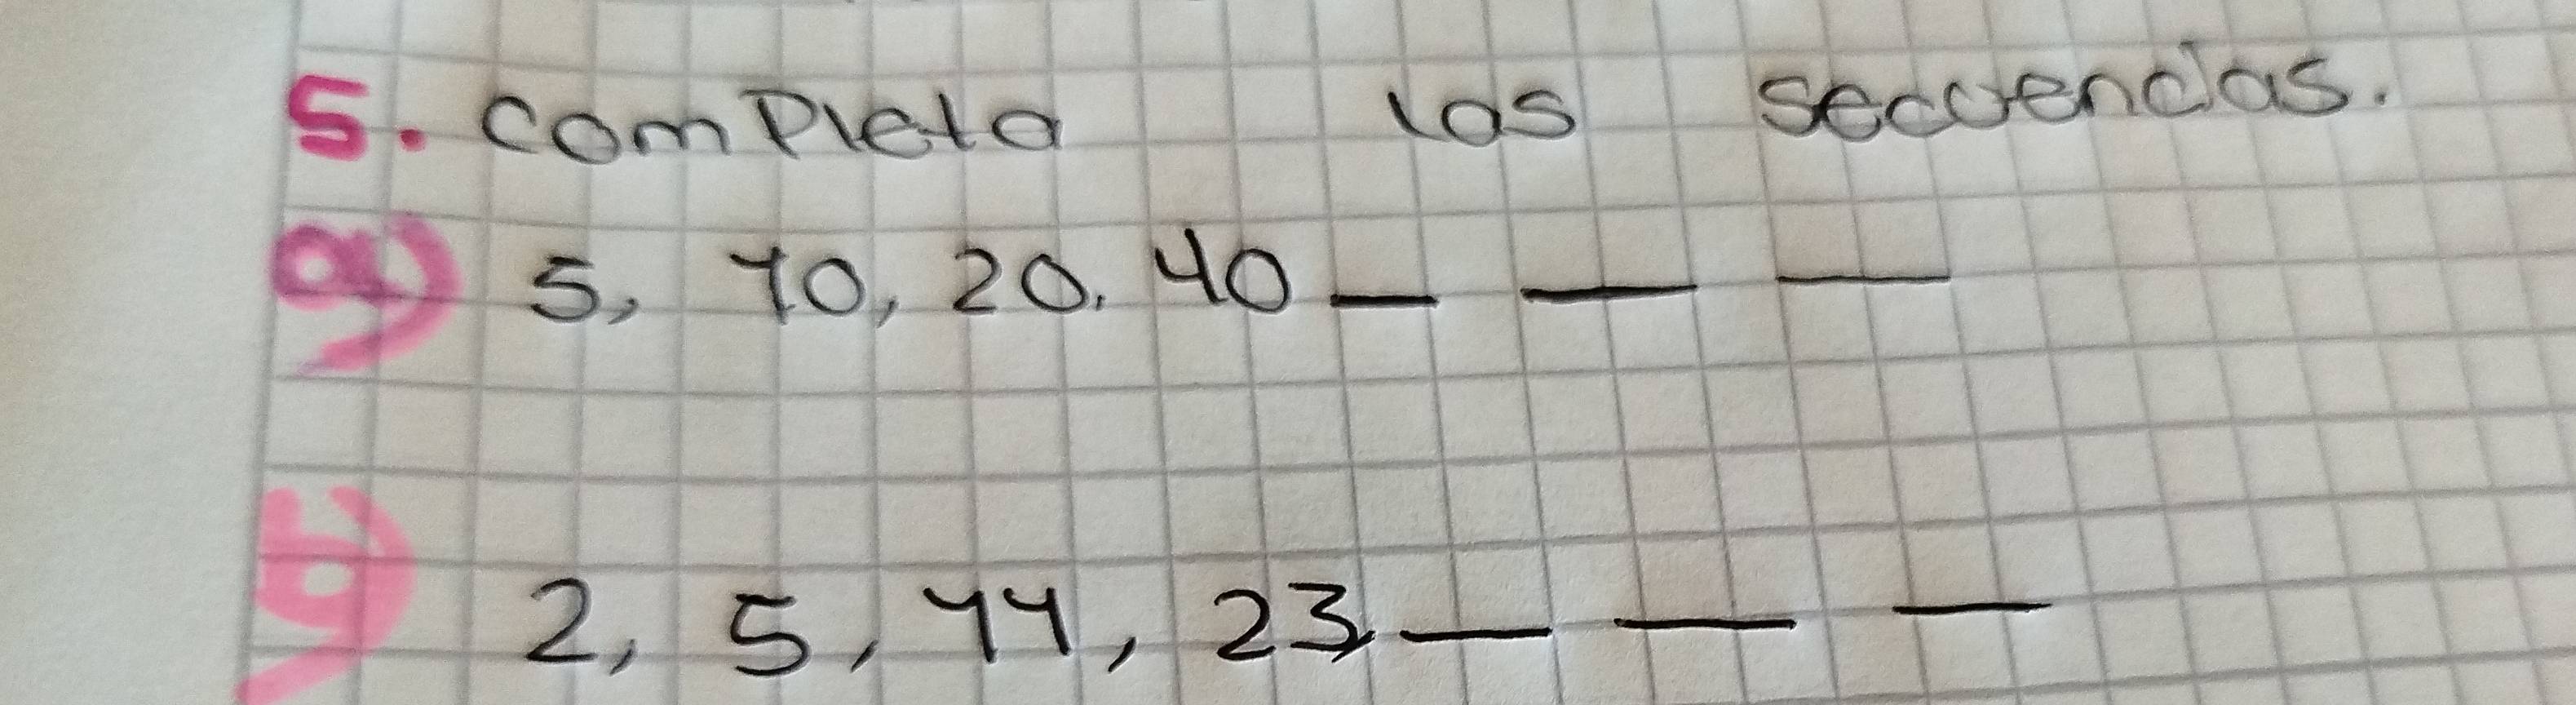 5. completa las secuencias.
a) 5, 10, 20, 40 _ _ _
b) 2, 5, 11, 23, _ _ _